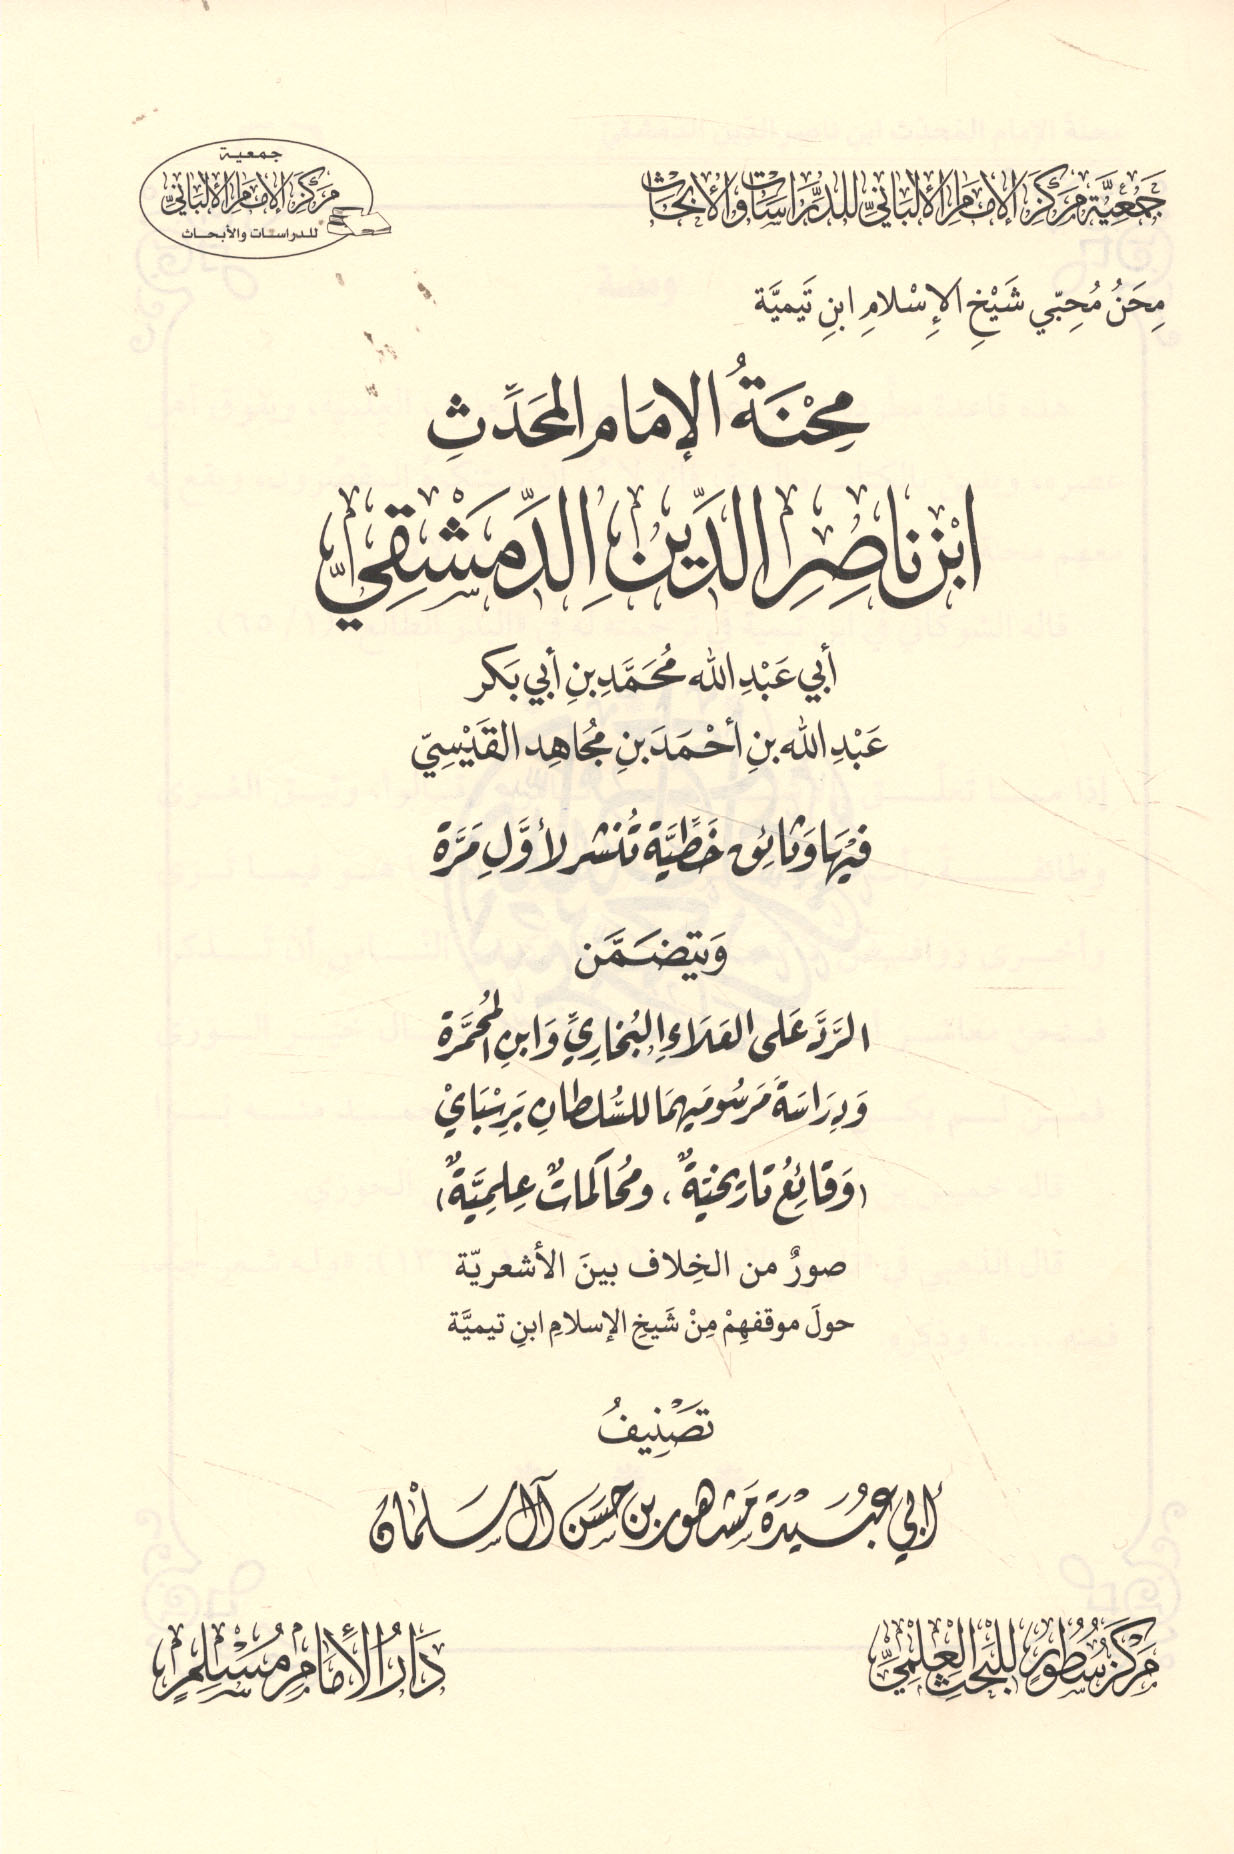 جَمْعِيَّة مَرْكَز الإِمَامِ الأَلْبَانِيِّ لِلدِّرَاسَاتِ وَالأَبْحَاثِ
جمعية
مركز الإمام الألباني
للدراسات والأبحاث
مِحَنُ مُحِبِّي شَيْخِ الإِسْلامِ ابنِ تَيميَّة
مِحْنَةُ الإمَامِ المحَدِّثِ
ابْنِ نَاصِرِ الدِّينِ الدِّمَشْقِيِّ
أبي عَبْدِ الله مُحَمَّد بنِ أبي بَكر
عَبْدِ الله بنِ أحْمَدَ بنِ مُجاهِد القَيْسِيّ
فيْهَا وَثائِق خَطِّيَّة تُنشر لأوَّلِ مَرَّة
وَيَتضَمَّن
الرَّدَّ عَلى العَلَاءِ البُخاريِّ وَابنِ المُحمَّرَة
وَدِرَاسَةَ مَرسُومَيهمَا للسُّلطانِ بَرِسْبَايْ
(وَقائِعُ تاريخيّةٌ، ومُحاكماتٌ عِلميَّةٌ)
صورٌ من الخِلاف بينَ الأشعريّة
حولَ موقفهِمْ مِنْ شَيخِ الإسلامِ ابنِ تيميَّة
تَصْنِيفُ
أبي عُبَيْدَة مَشهُور بن حَسَن آل سَلْمَان
مَرْكَز سُطُور لِلبَحْثِ العِلْمِيِّ
دَارُ الإِمَامِ مُسْلِمٍ